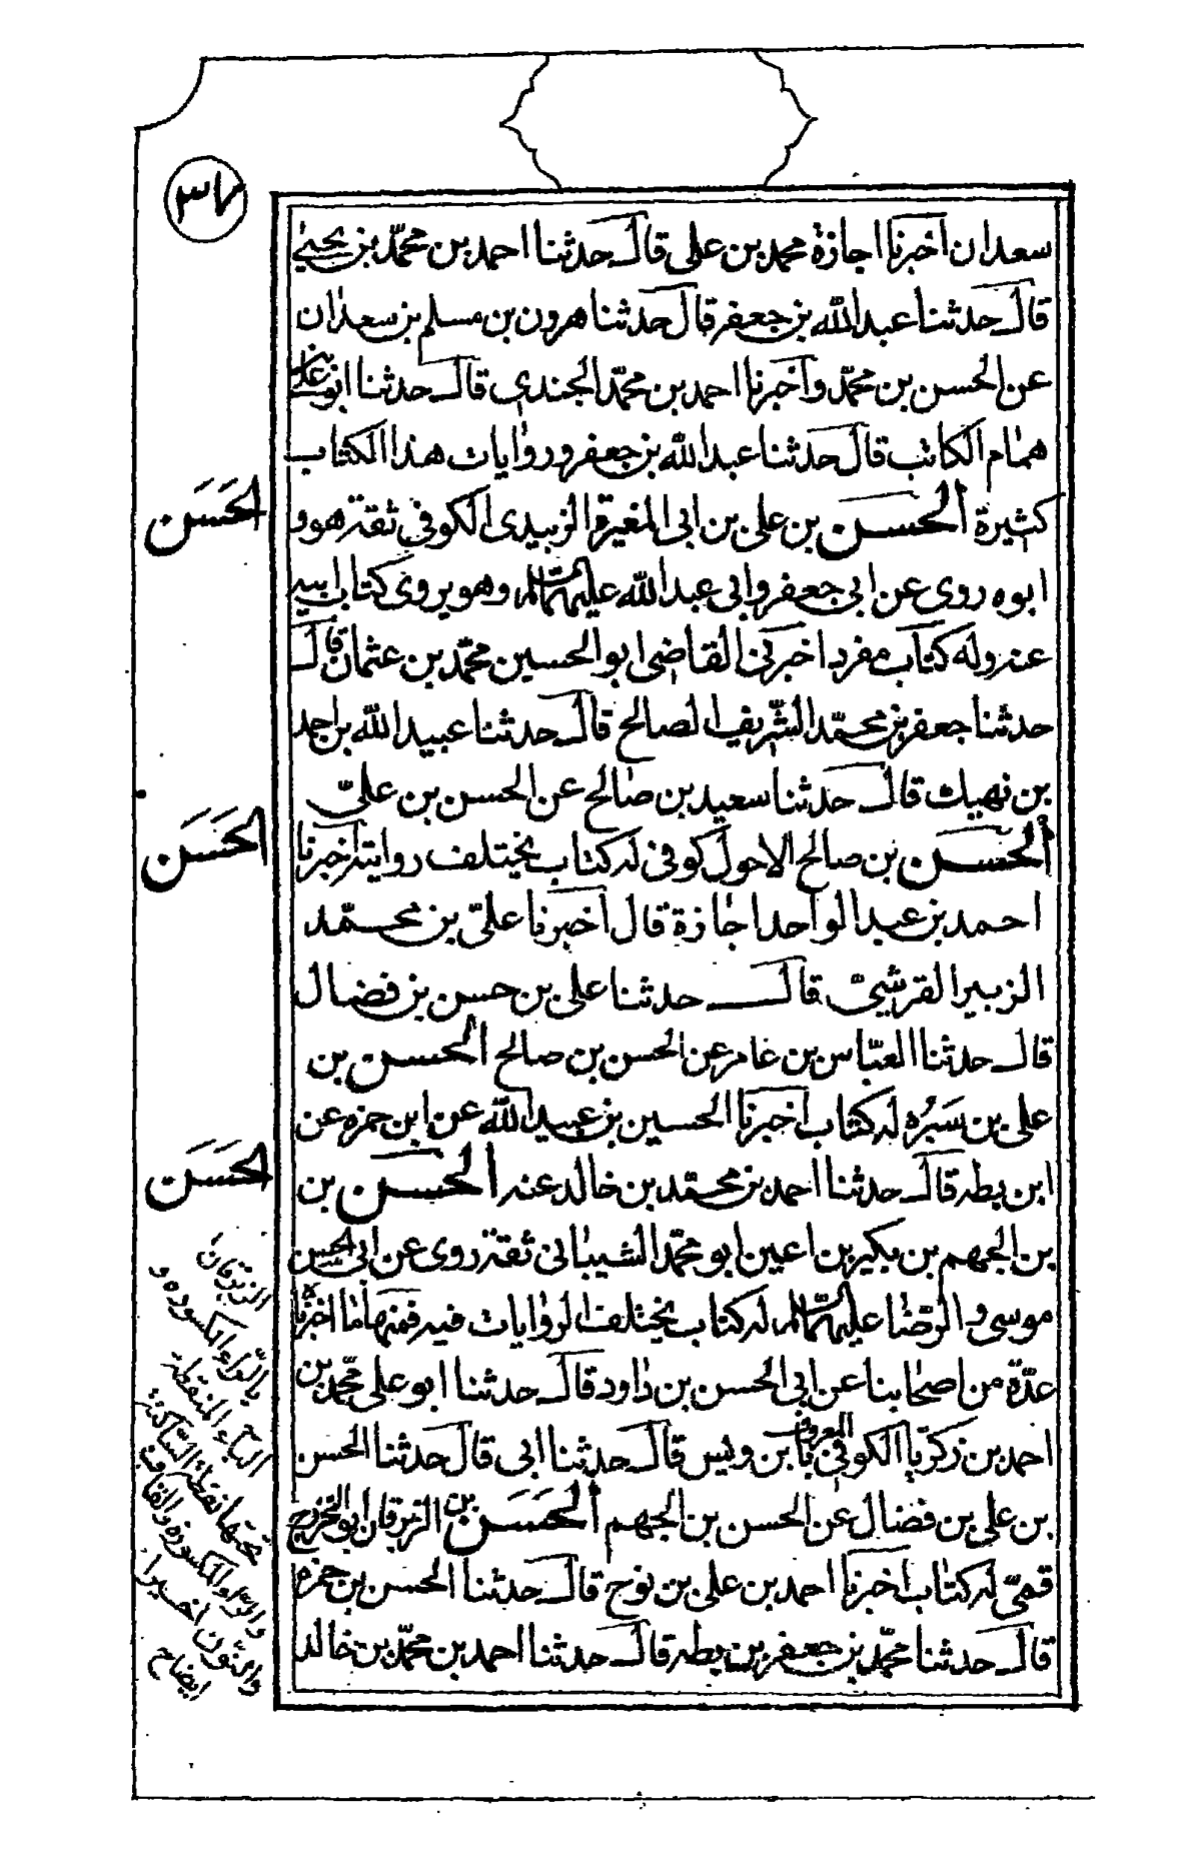 ٣٧
سعدان اخبرنا اجازة محمد بن على قال حدثنا احمد بن محمّد بن يحيى
قال حدثنا عبد الله بن جعفر قال حدثنا هرون بن مسلم بن سعدان
عن الحسن بن محمّد واخبرنا احمد بن محمّد الجندى قال حدثنا ابو على بن
همام الكاتب قال حدثنا عبد الله بن جعفر وروايات هذا الكتاب
كثيرة الحسن بن على بن ابى المغيرة الزبيدى الكوفى ثقة هو و
ابوه روى عن ابى جعفر وابى عبد الله عليهما السلام وهو يروى كتاب ابيه
عنه وله كتاب مفرد اخبرنى القاضى ابو الحسين محمّد بن عثمان قال
حدثنا جعفر بن محمّد الشّريف الصالح قال حدثنا عبيد الله بن احمد
بن نهيك قال حدثنا سعيد بن صالح عن الحسن بن علىّ
الحسن بن صالح الاحول كوفى له كتاب يختلف روايته اخبرنا
احمد بن عبد الواحد اجازة قال اخبرنا علىّ بن محمّد
الزبير القرشىّ قال حدثنا على بن حسن بن فضال
قال حدثنا العبّاس بن عامر عن الحسن بن صالح الحسن بن
على بن سَبُره له كتاب اخبرنا الحسين بن عبيد الله عن ابن حمزه عن
ابن بطه قال حدثنا احمد بن محمّد بن خالد عنه الحسن بن
بن الجهم بن بكير بن اعين ابو محمّد الشيبانى ثقة روى عن ابى الحسن
موسى و الرّضا عليهما السلام له كتاب يختلف الروايات فيه فمنها ما اخبرنا
عدّة من اصحابنا عن ابى الحسن بن داود قال حدثنا ابو على محمّد بن
احمد بن زكريّا الكوفى المعروف بابن وبس قال حدثنا ابى قال حدثنا الحسن
بن على بن فضال عن الحسن بن الجهم الحَسَن بن الزبرقان ابو الخزرج
قمىّ له كتاب اخبرنا احمد بن على بن نوح قال حدثنا الحسن بن حمزه
قال حدثنا محمّد بن جعفر بن بطه قال حدثنا احمد بن محمّد بن خالد
الحَسَن
الحَسَن
الحَسَن
الزبرقان
بالزّاء المكسوره و
الباء المنقطة
تحتها نقطة السّاكنة
والرّاء المكسورة والقاف
والنّون اخيرا
ايضاح